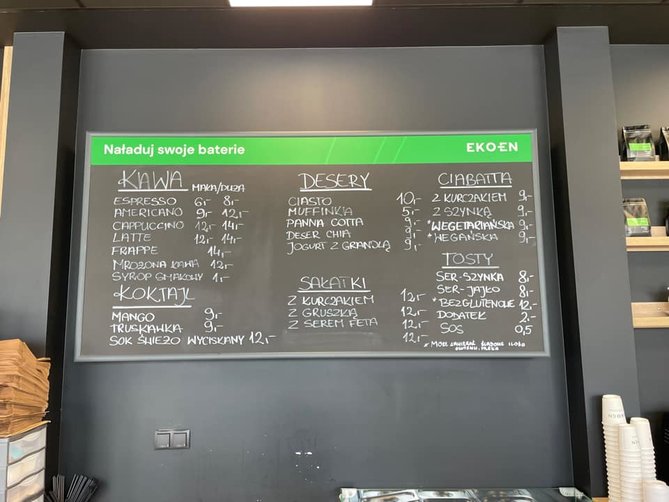 Naładuj swoje baterie
EKOEN
KAWA MAŁA/DUŻA
ESPRESSO 6,- 8,-
AMERICANO 9,- 12,-
CAPPUCCINO 12,- 14,-
LATTE 12,- 14,-
FRAPPE 14,-
MROŻONA KAWA 12,-
SYROP SMAKOWY 1,-
KOKTAJL
MANGO 9,-
TRUSKAWKA 9,-
SOK ŚWIEŻO WYCISKANY 12,-
DESERY
CIASTO 10,-
MUFFINKA 5,-
PANNA COTTA 9,-
DESER CHIA 9,-
JOGURT Z GRANOLĄ 9,-
SAŁATKI
Z KURCZAKIEM 12,-
Z GRUSZKĄ 12,-
Z SEREM FETA 12,-
12,-
CIABATTA
Z KURCZAKIEM 9,-
Z SZYNKĄ 9,-
*WEGETARIAŃSKA 9,-
*WEGAŃSKA 9,-
TOSTY
SER-SZYNKA 8,-
SER-JAJKO 8,-
*BEZGLUTENOWE 12,-
DODATEK 2,-
SOS 0,5
* MOŻE ZAWIERAĆ ŚLADOWE ILOŚCI
GLUTENU, MLEKA